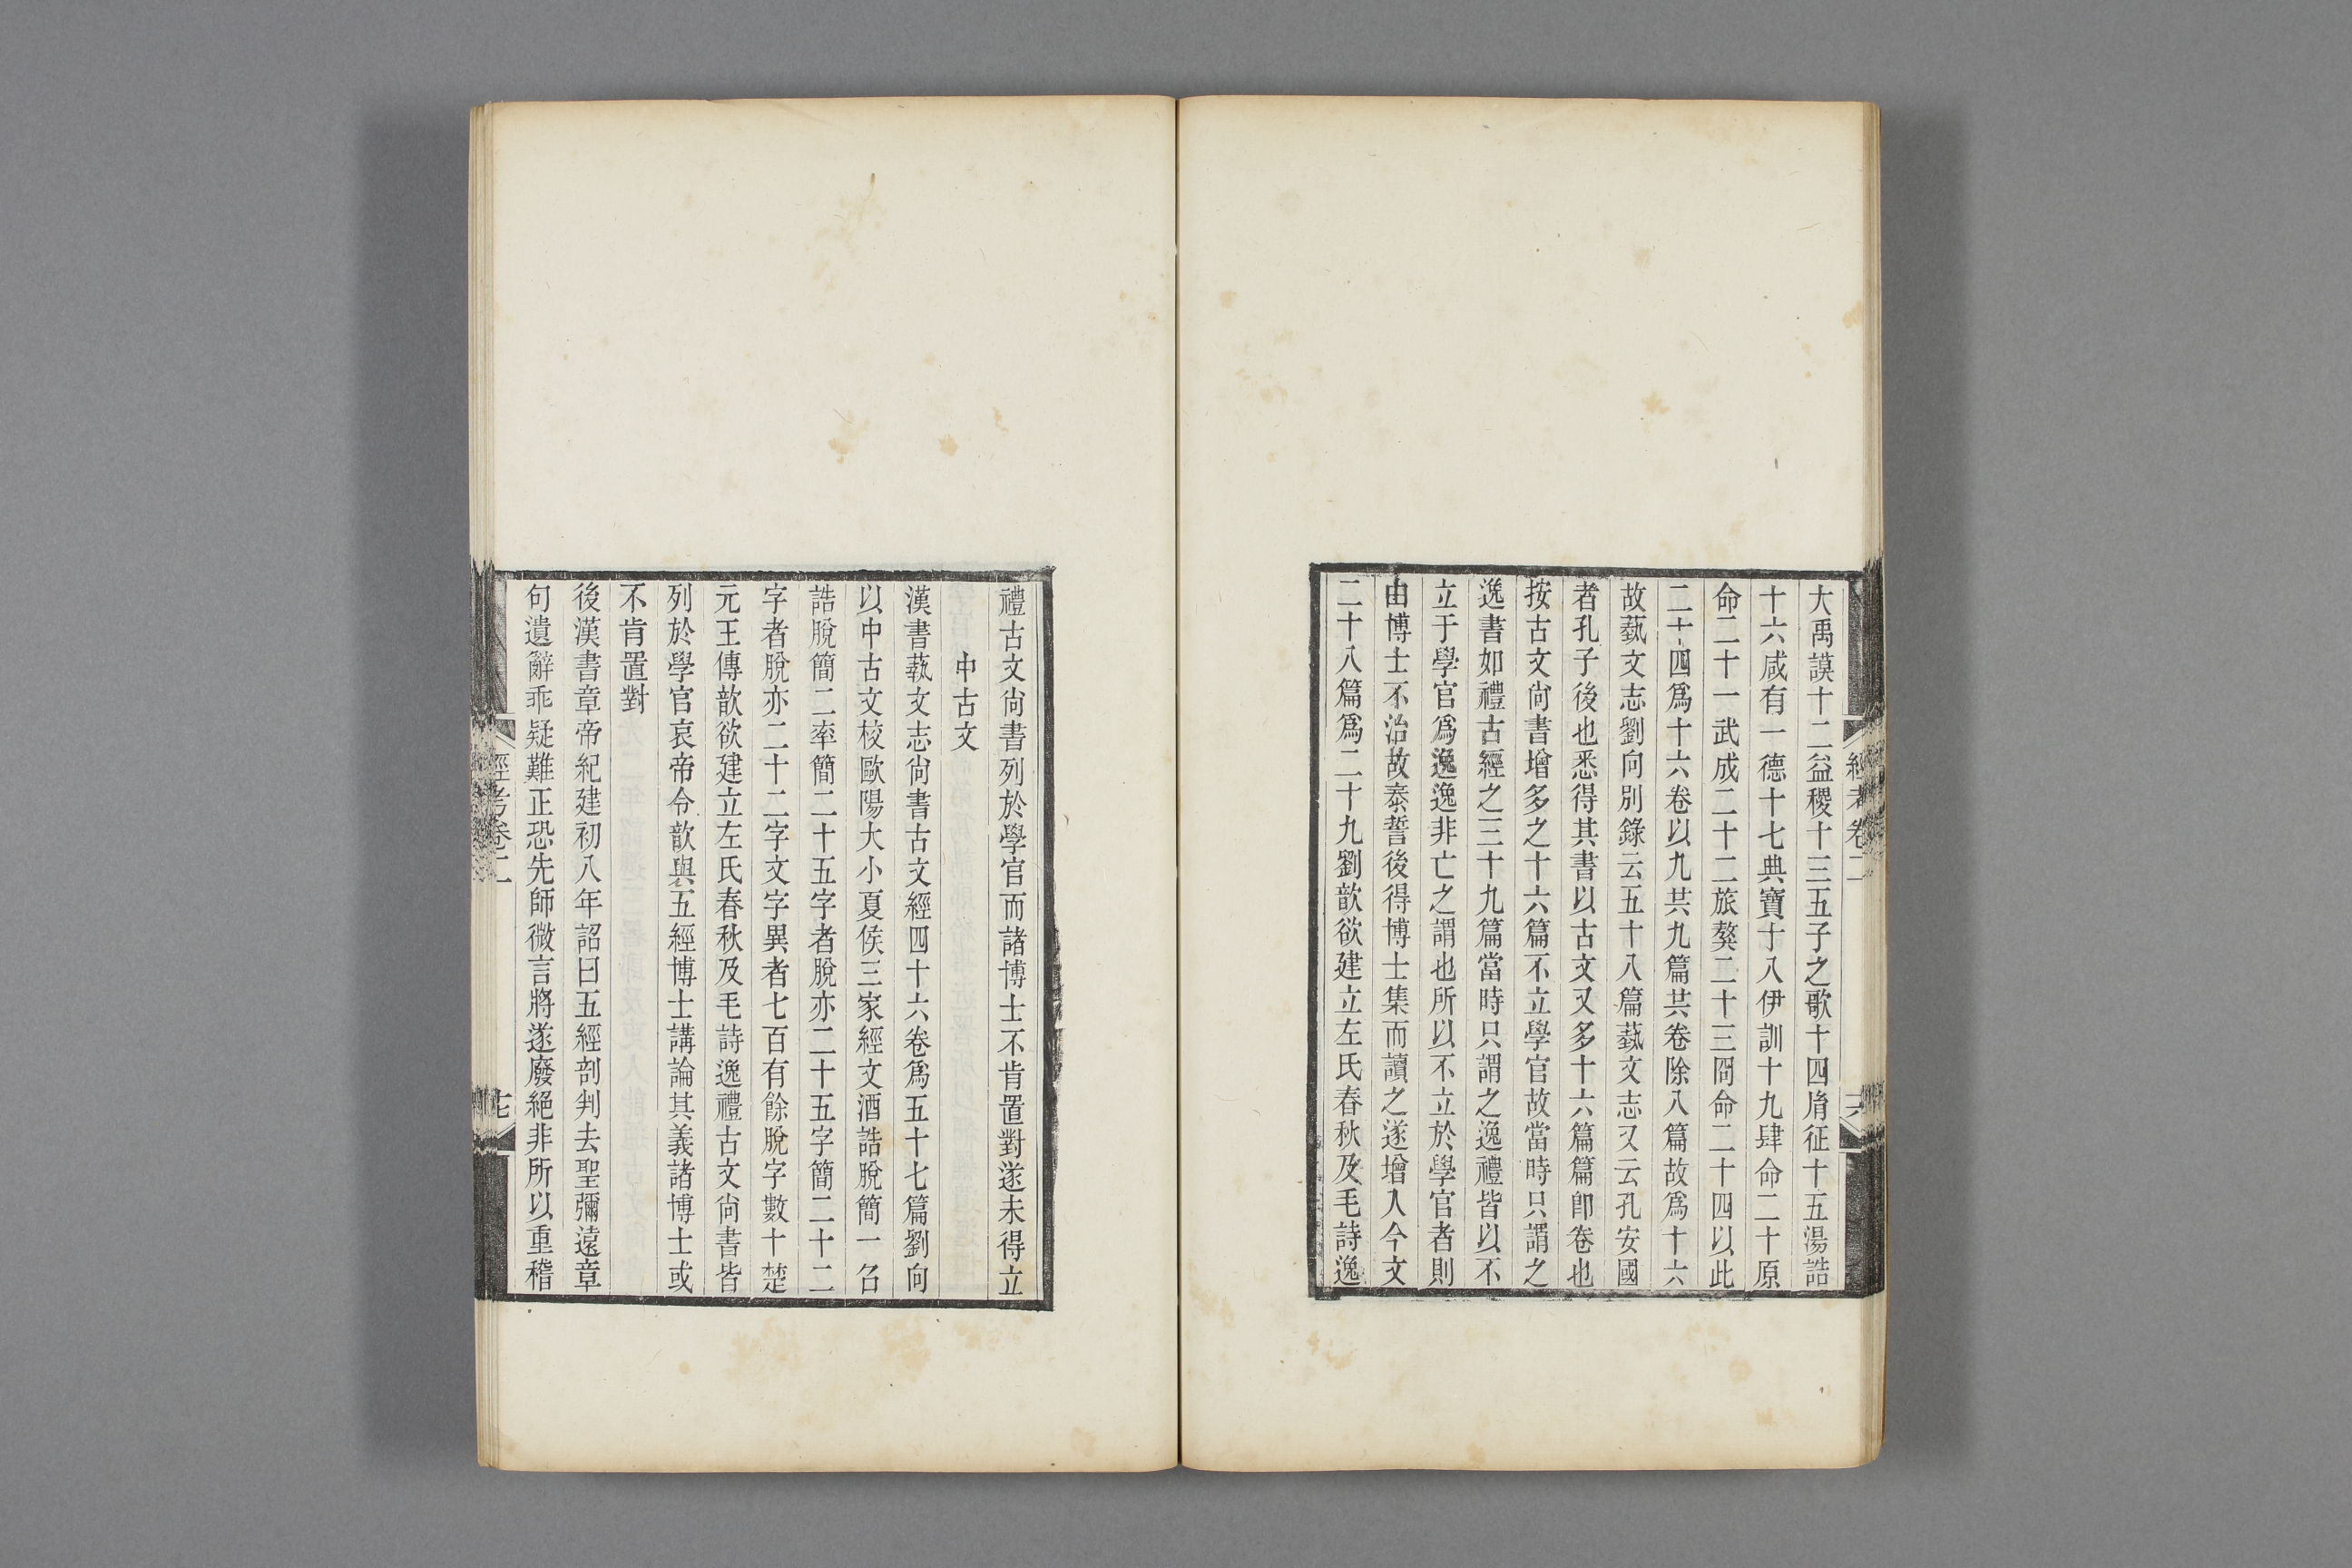 經考卷二
十六
大禹謨十二益稷十三五子之歌十四胤征十五湯誥
十六咸有一德十七典寶十八伊訓十九肆命二十原
命二十一武成二十二旅獒二十三冏命二十四以此
二十四爲十六卷以九共九篇共卷除八篇故爲十六
故蓺文志劉向別錄云五十八篇蓺文志又云孔安國
者孔子後也悉得其書以古文又多十六篇篇卽卷也
按古文尙書增多之十六篇不立學官故當時只謂之
逸書如禮古經之三十九篇當時只謂之逸禮皆以不
立于學官爲逸逸非亡之謂也所以不立於學官者則
由博士不治故泰誓後得博士集而讀之遂增入今文
二十八篇爲二十九劉歆欲建立左氏春秋及毛詩逸
禮古文尙書列於學官而諸博士不肯置對遂未得立
中古文
漢書蓺文志尙書古文經四十六卷爲五十七篇劉向
以中古文校歐陽大小夏侯三家經文酒誥脫簡一召
誥脫簡二率簡二十五字者脫亦二十五字簡二十二
字者脫亦二十二字文字異者七百有餘脫字數十楚
元王傳歆欲建立左氏春秋及毛詩逸禮古文尙書皆
列於學官哀帝令歆與五經博士講論其義諸博士或
不肯置對
後漢書章帝紀建初八年詔曰五經剖判去聖彌遠章
句遺辭乖疑難正恐先師微言將遂廢絕非所以重稽
經考卷二